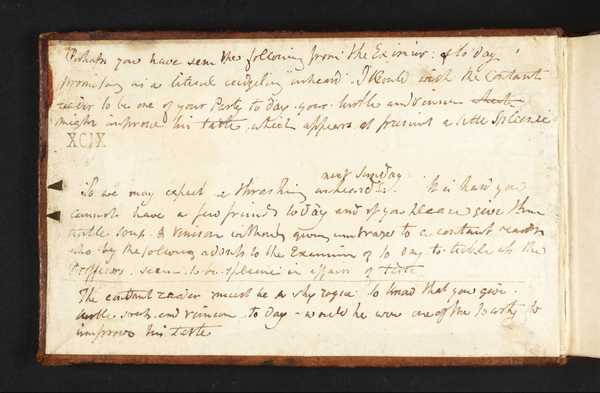 Perhaps you have seen the following from the Examiner of to day
promising as a literal cudgeling unheard. I would wish the Constant
reader to be one of your Party to day your turtle and venison
might improve his taste, which appears at present a little Splenic
XCIX
next Sunday
So we may expect a thrashing unheard is. It is hard you
cannot have a few friends to day and if you please give them
turtle soup & venison without giving umbrage to a constant reader
who by the following adverts to the Examiner of to day to tickle it the
Professors seem to be splenic in affairs of taste
The constant reader must be a shy rogue to know that you give
turtle and venison to day - would he were one of the party to
improve his taste